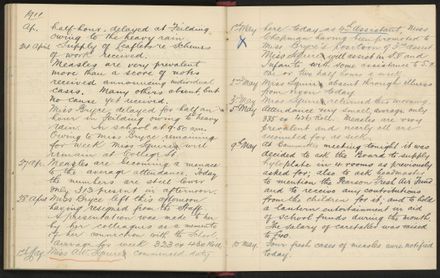 1911
Ap. half-hour, delayed at Feilding
owing to the heavy rain.
24 April Supply of leaflets re schemes
of work received.
Measles are very prevalent
more than a score of notes
received announcing individual
cases. Many others absent but
no cause yet received.
Miss Bryce delayed for half an
hour in Feilding owing to heavy
rain. In school at 9.50 am.
Owing to Miss Bryce remaining
for week Miss Squires will
remain at College St.
27 Ap. Measles are becoming a menace
to the average attendance. Today
the numbers are about lower
only 313 present in afternoon.
28 Ap. Miss Bryce left this afternoon
having resigned from the Staff.
A presentation was made to her
by her colleagues as a memento
of her connection with the School
Average for week 333 on 460 Roll
1st May Miss Squires commenced duty
1st May here today as 4th Assistant, Miss
Chapman having been promoted to
Miss Bryce's position of 3rd Assist.
Miss Squires will assist in St. and
Infants with some assistance to S 5
one or two half hours a week
2nd May Miss Squires absent through illness
from noon today
3rd May Miss Squires returned this morning.
5th May Attendance very small, average only
335 on 462 Roll. Measles are very
prevalent and nearly all are
accounted for as sick.
9th May At Committee meeting tonight it was
decided to ask the Board to supply
plate in rooms as previously
asked for; also to ask headmaster
to mention the Parson Fresh Air Fund
and to receive any contributions
from the children for it; and to hold
a lantern entertainment in aid
of school funds during the month.
The salary of caretaker was raised
to £
10 May Four fresh cases of measles were notified
today.